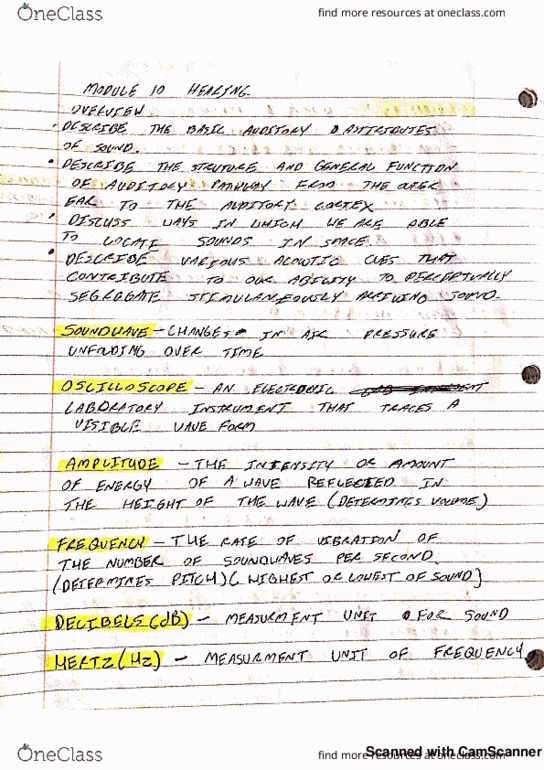 OneClass
find more resources at oneclass.com
MODULE 10 HEARING
OVERVIEW
• DESCRIBE THE BASIC AUDITORY ATTRIBUTES
OF SOUND.
• DESCRIBE THE STRUTURE AND GENERAL FUNCTION
OF AUDITORY PATHWAY FROM THE OUTER
EAR TO THE AUDITORY CORTEX
• DISCUSS WAYS IN WHICH WE ARE ABLE
TO LOCATE SOUNDS IN SPACE.
• DESCRIBE VARIOUS ACOUTIC CUES THAT
CONTRIBUTE TO OUR ABILITY TO PERCEPTUALLY
SEGREGATE STIMULANEOUSLY ARRIVING SOUND.
SOUNDWAVE - CHANGES IN AIR PRESSURE
UNFOLDING OVER TIME
OSCILLOSCOPE - AN ELECTRONIC
LABORATORY INSTRUMENT THAT TRACES A
VISIBLE WAVE FORM
AMPLITUDE - THE INTENSITY OR AMOUNT
OF ENERGY OF A WAVE REFLECTED IN
THE HEIGHT OF THE WAVE (DETERMINES VOLUME)
FREQUENCY - THE RATE OF VIBRATION OF
THE NUMBER OF SOUNDWAVES PER SECOND.
(DETERMINES PITCH) (HIGHEST OR LOWEST OF SOUND)
DECIBELS (dB) - MEASURMENT UNIT FOR SOUND
HERTZ (Hz) - MEASURMENT UNIT OF FREQUENCY
OneClass
find more resources at oneclass.com
Scanned with CamScanner